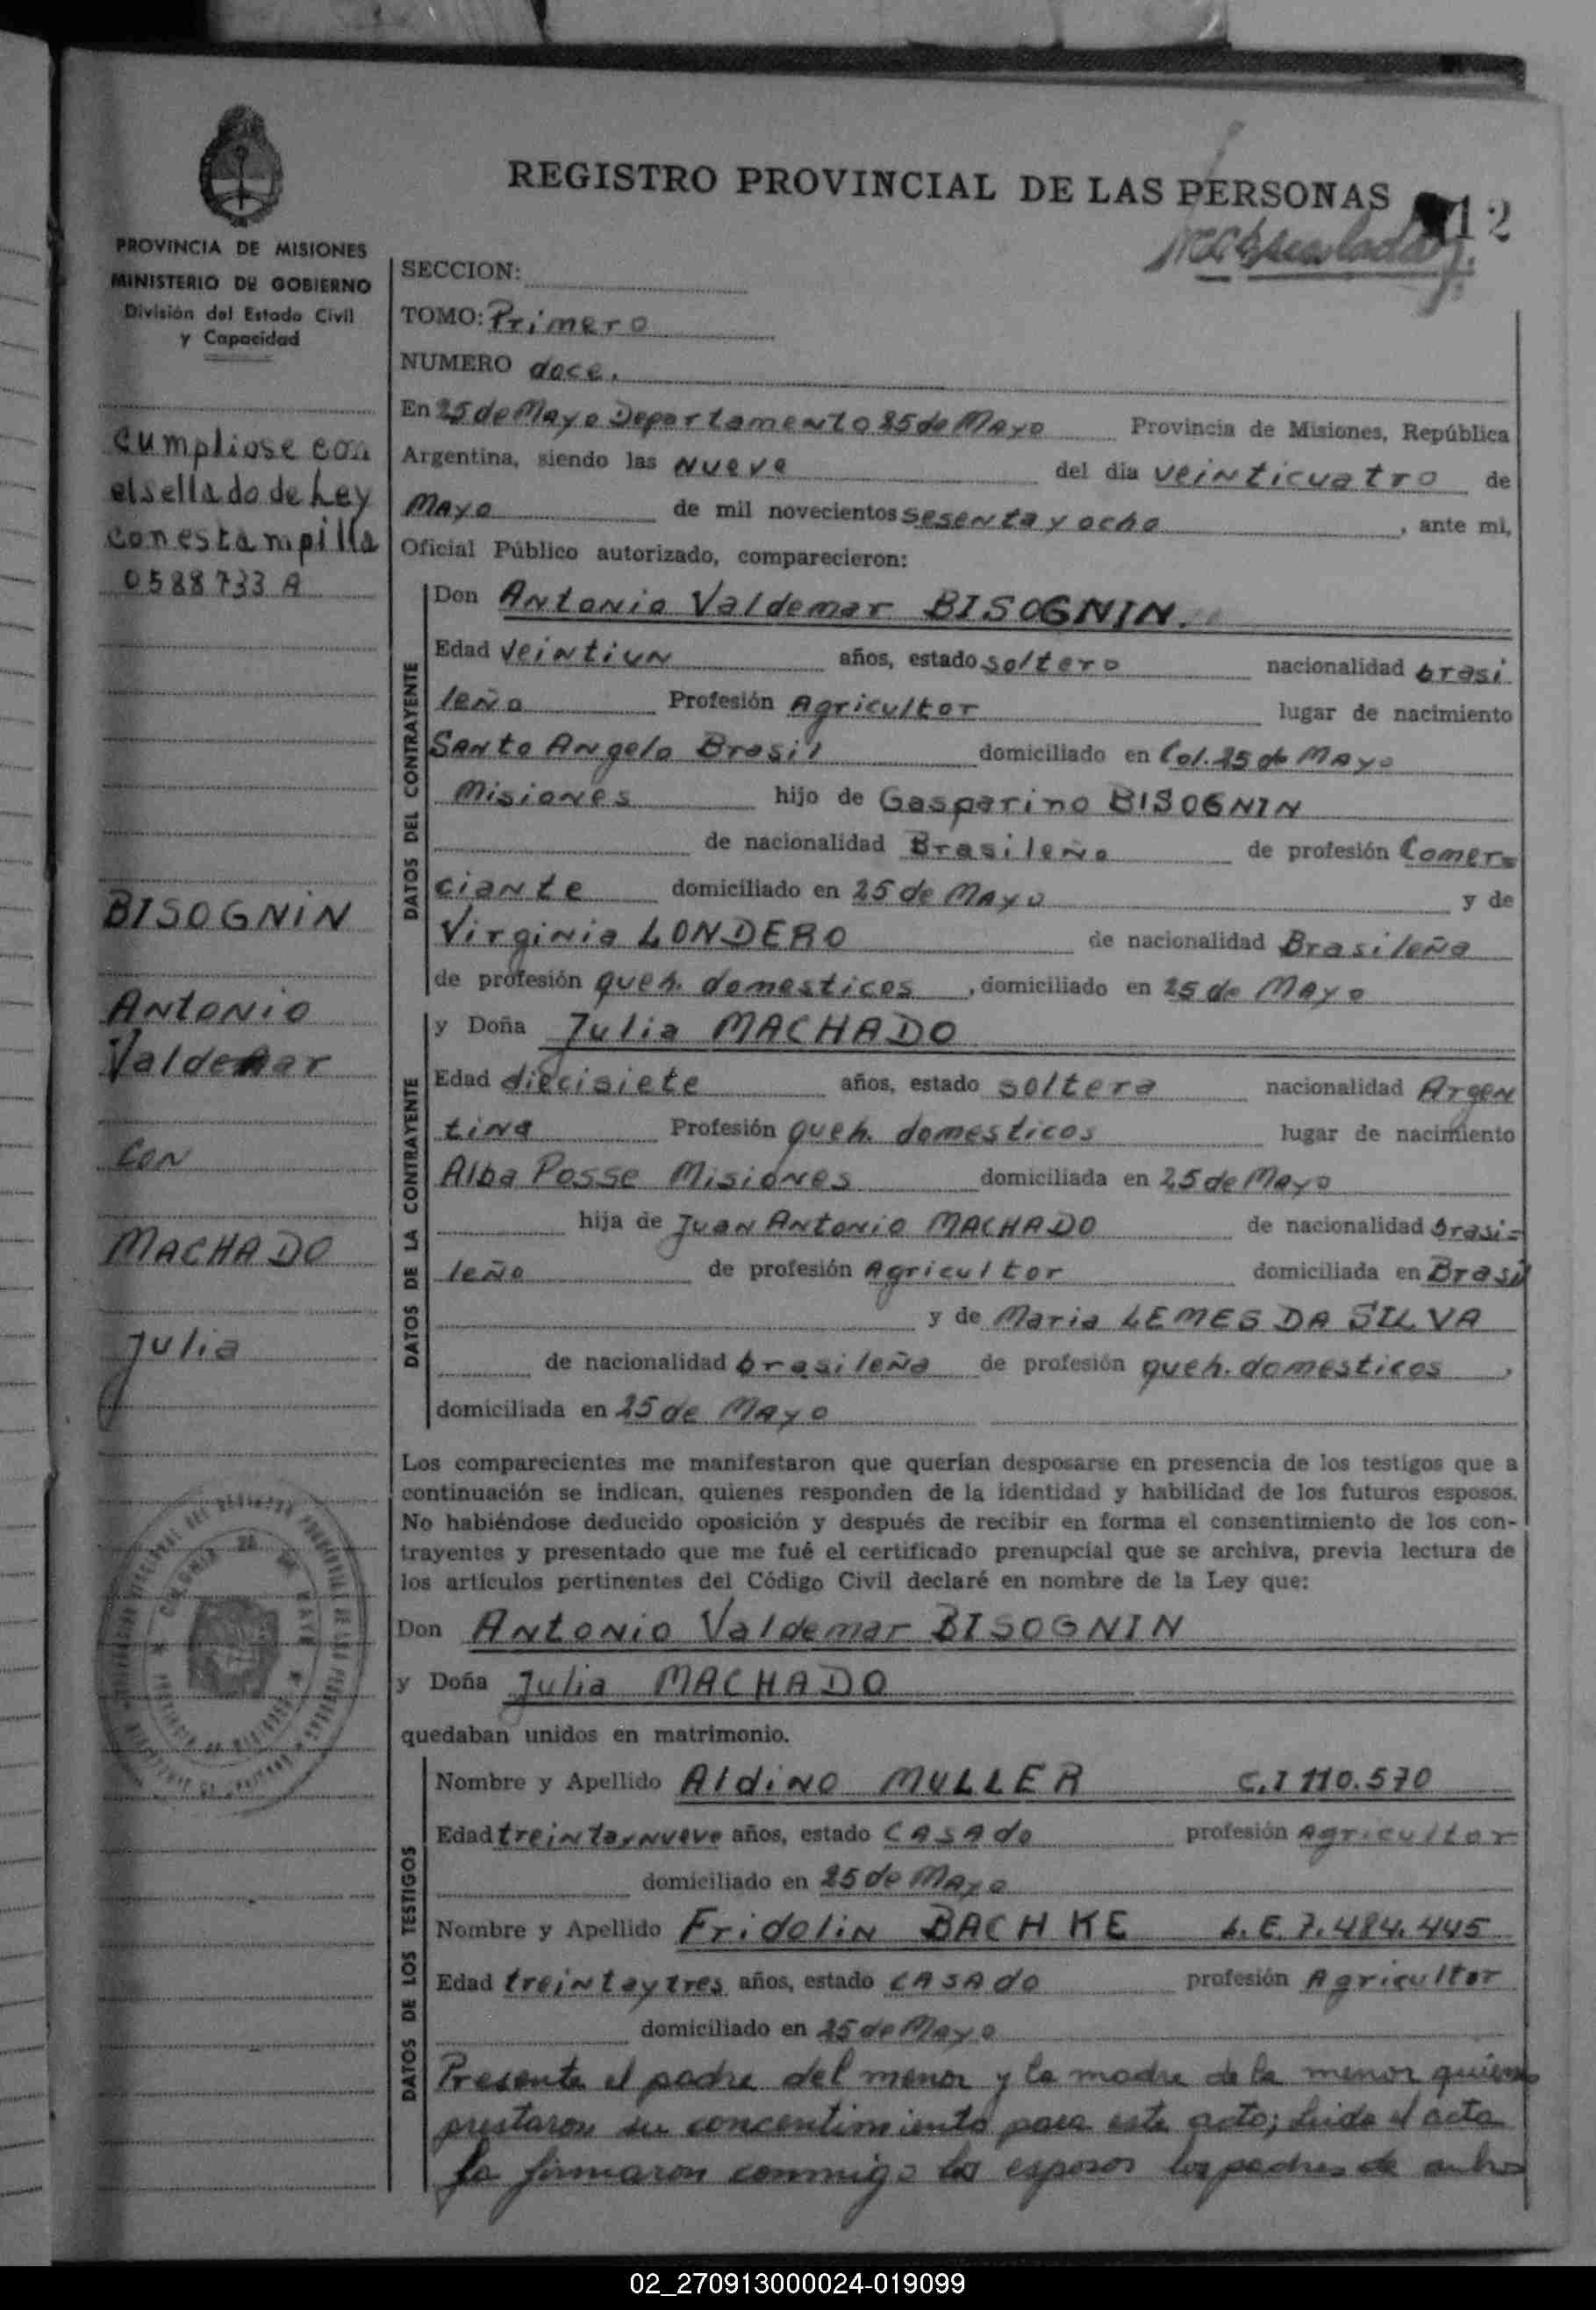 REGISTRO PROVINCIAL DE LAS PERSONAS
12
PROVINCIA DE MISIONES
MINISTERIO DE GOBIERNO
División del Estado Civil
y Capacidad
cumpliose con
el sellado de Ley
con estampilla
0588733 A
BISOGNIN
Antonio
Valdemar
con
MACHADO
Julia
SECCION:
TOMO: Primero
NUMERO doce.
En 25 de Mayo Departamento 25 de Mayo Provincia de Misiones, República
Argentina, siendo las nueve del día veinticuatro de
Mayo de mil novecientos sesenta y ocho, ante mi,
Oficial Público autorizado, comparecieron:
DATOS DEL CONTRAYENTE
Don Antonio Valdemar BISOGNIN.
Edad veintiun años, estado soltero nacionalidad brasi
leño Profesión Agricultor lugar de nacimiento
Santo Angelo Brasil domiciliado en Col. 25 de Mayo
Misiones hijo de Gasparino BISOGNIN
de nacionalidad Brasileño de profesión Comer=
ciante domiciliado en 25 de Mayo y de
Virginia LONDERO de nacionalidad Brasileña
de profesión queh. domesticos, domiciliado en 25 de Mayo
DATOS DE LA CONTRAYENTE
y Doña Julia MACHADO
Edad diecisiete años, estado soltera nacionalidad Argen
tina Profesión queh. domesticos lugar de nacimiento
Alba Posse Misiones domiciliada en 25 de Mayo
hija de Juan Antonio MACHADO de nacionalidad brasi=
leño de profesión Agricultor domiciliada en Brasil
y de Maria LEMES DA SILVA
de nacionalidad brasileña de profesión queh. domesticos,
domiciliada en 25 de Mayo
Los comparecientes me manifestaron que querían desposarse en presencia de los testigos que a
continuación se indican, quienes responden de la identidad y habilidad de los futuros esposos.
No habiéndose deducido oposición y después de recibir en forma el consentimiento de los con-
trayentes y presentado que me fué el certificado prenupcial que se archiva, previa lectura de
los artículos pertinentes del Código Civil declaré en nombre de la Ley que:
Don Antonio Valdemar BISOGNIN
y Doña Julia MACHADO
quedaban unidos en matrimonio.
DATOS DE LOS TESTIGOS
Nombre y Apellido Aldino MULLER C.I 110.570
Edad treinta y nueve años, estado casado profesión Agricultor
domiciliado en 25 de Mayo
Nombre y Apellido Fridolin BACHKE L.E. 7.484.445
Edad treinta y tres años, estado casado profesión Agricultor
domiciliado en 25 de Mayo
Presente el padre del menor y la madre de la menor quienes
prestaron su concentimiento para este acto; leida el acta
la firmaron conmigo los esposos los padres de ambos
02_270913000024-019099